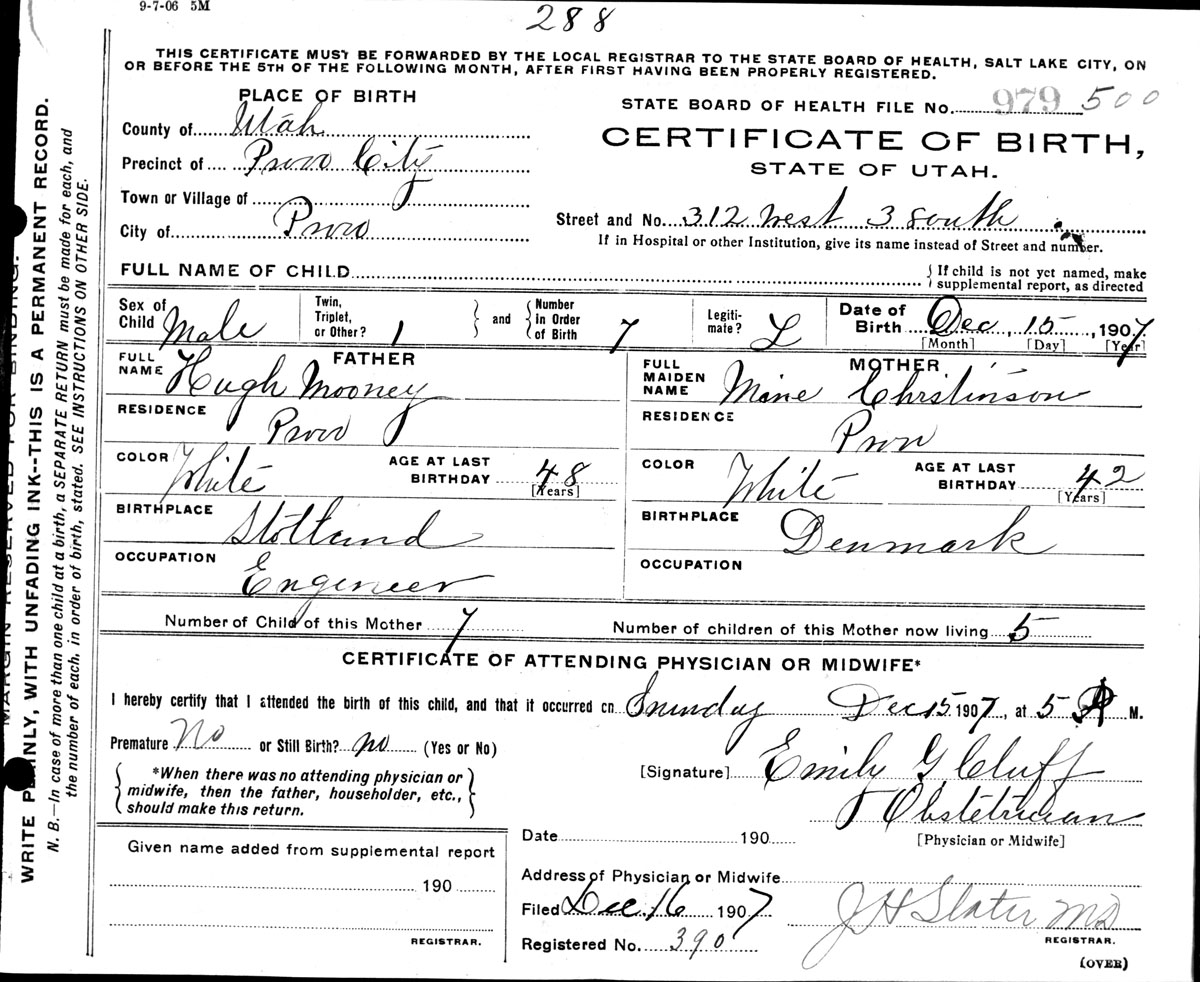 9-7-06 5M
288
THIS CERTIFICATE MUST BE FORWARDED BY THE LOCAL REGISTRAR TO THE STATE BOARD OF HEALTH, SALT LAKE CITY, ON
OR BEFORE THE 5TH OF THE FOLLOWING MONTH, AFTER FIRST HAVING BEEN PROPERLY REGISTERED.
PLACE OF BIRTH
STATE BOARD OF HEALTH FILE No. 979 500
County of Utah
CERTIFICATE OF BIRTH,
Precinct of Provo City
STATE OF UTAH.
Town or Village of
Street and No. 312 west 3 south
City of Provo
If in Hospital or other Institution, give its name instead of Street and number.
FULL NAME OF CHILD { If child is not yet named, make
supplemental report, as directed
Sex of Child Male
Twin, Triplet, or Other? 1
and
Number in Order of Birth 7
Legiti-mate? L
Date of Birth Dec, 15, 1907
[Month] [Day] [Year]
FATHER
FULL NAME Hugh Mooney
MOTHER
FULL MAIDEN NAME Mine Christinson
RESIDENCE Provo
RESIDENCE Provo
COLOR White AGE AT LAST BIRTHDAY 48 [Years]
COLOR White AGE AT LAST BIRTHDAY 42 [Years]
BIRTHPLACE Stotland
BIRTHPLACE Denmark
OCCUPATION Engineer
OCCUPATION
Number of Child of this Mother 7
Number of children of this Mother now living 5
CERTIFICATE OF ATTENDING PHYSICIAN OR MIDWIFE*
I hereby certify that I attended the birth of this child, and that it occurred on Sunday Dec 15 1907, at 5 M.
Premature No or Still Birth? no (Yes or No)
[Signature] Emily G Cluff
*When there was no attending physician or
midwife, then the father, householder, etc.,
should make this return.
Obstetrician
[Physician or Midwife]
Date 190
Given name added from supplemental report
190
REGISTRAR.
Address of Physician or Midwife
Filed Dec, 16 1907
J H Slater MD
REGISTRAR.
Registered No. 390
(OVER)
MARGIN RESERVED FOR BINDING.
WRITE PLAINLY, WITH UNFADING INK--THIS IS A PERMANENT RECORD.
N. B.—In case of more than one child at a birth, a SEPARATE RETURN must be made for each, and
the number of each, in order of birth, stated. SEE INSTRUCTIONS ON OTHER SIDE.